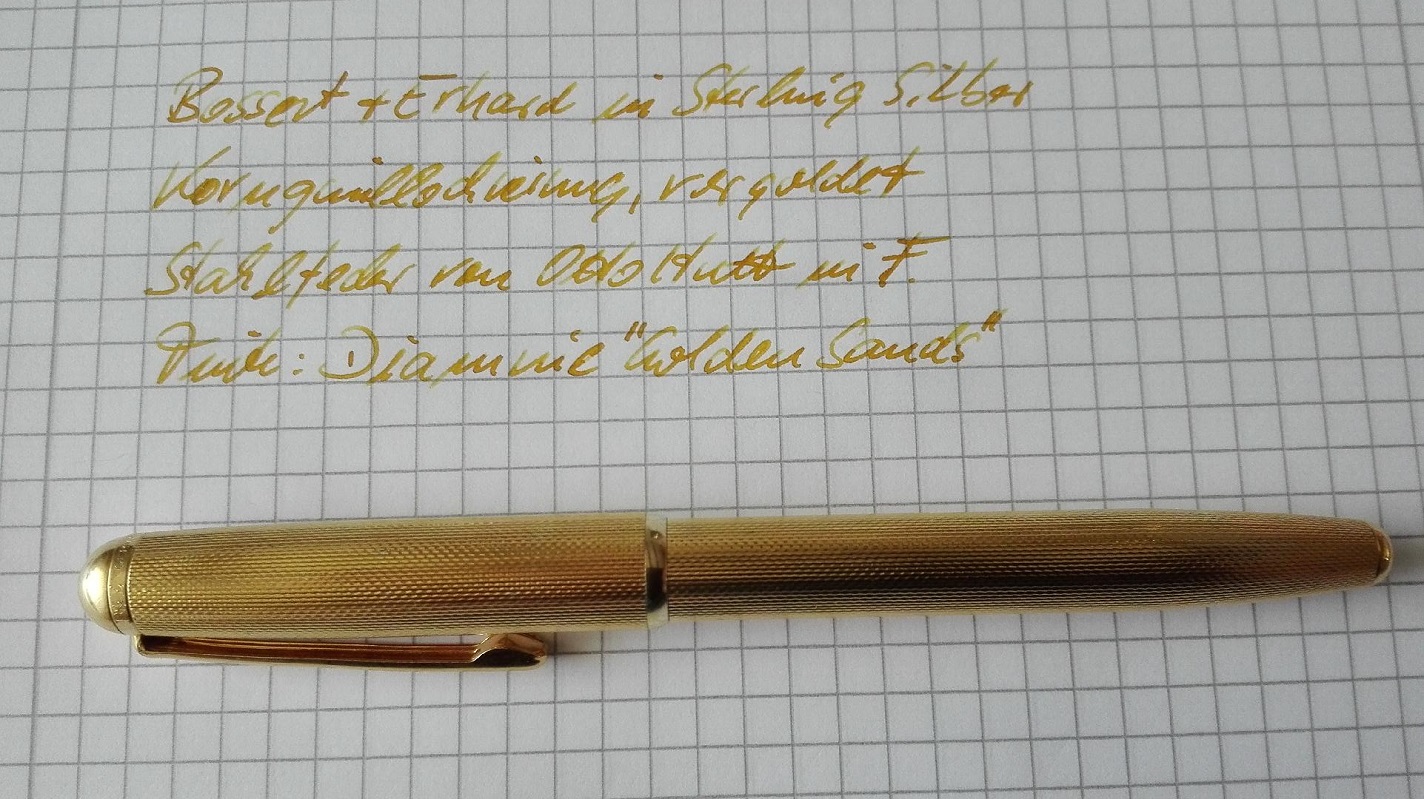 Bossert + Erhard in Sterling Silber
Kornguillochierung, vergoldet
Stahlfeder von Otto Hutt in F.
Tinte: Diamine "Golden Sands"